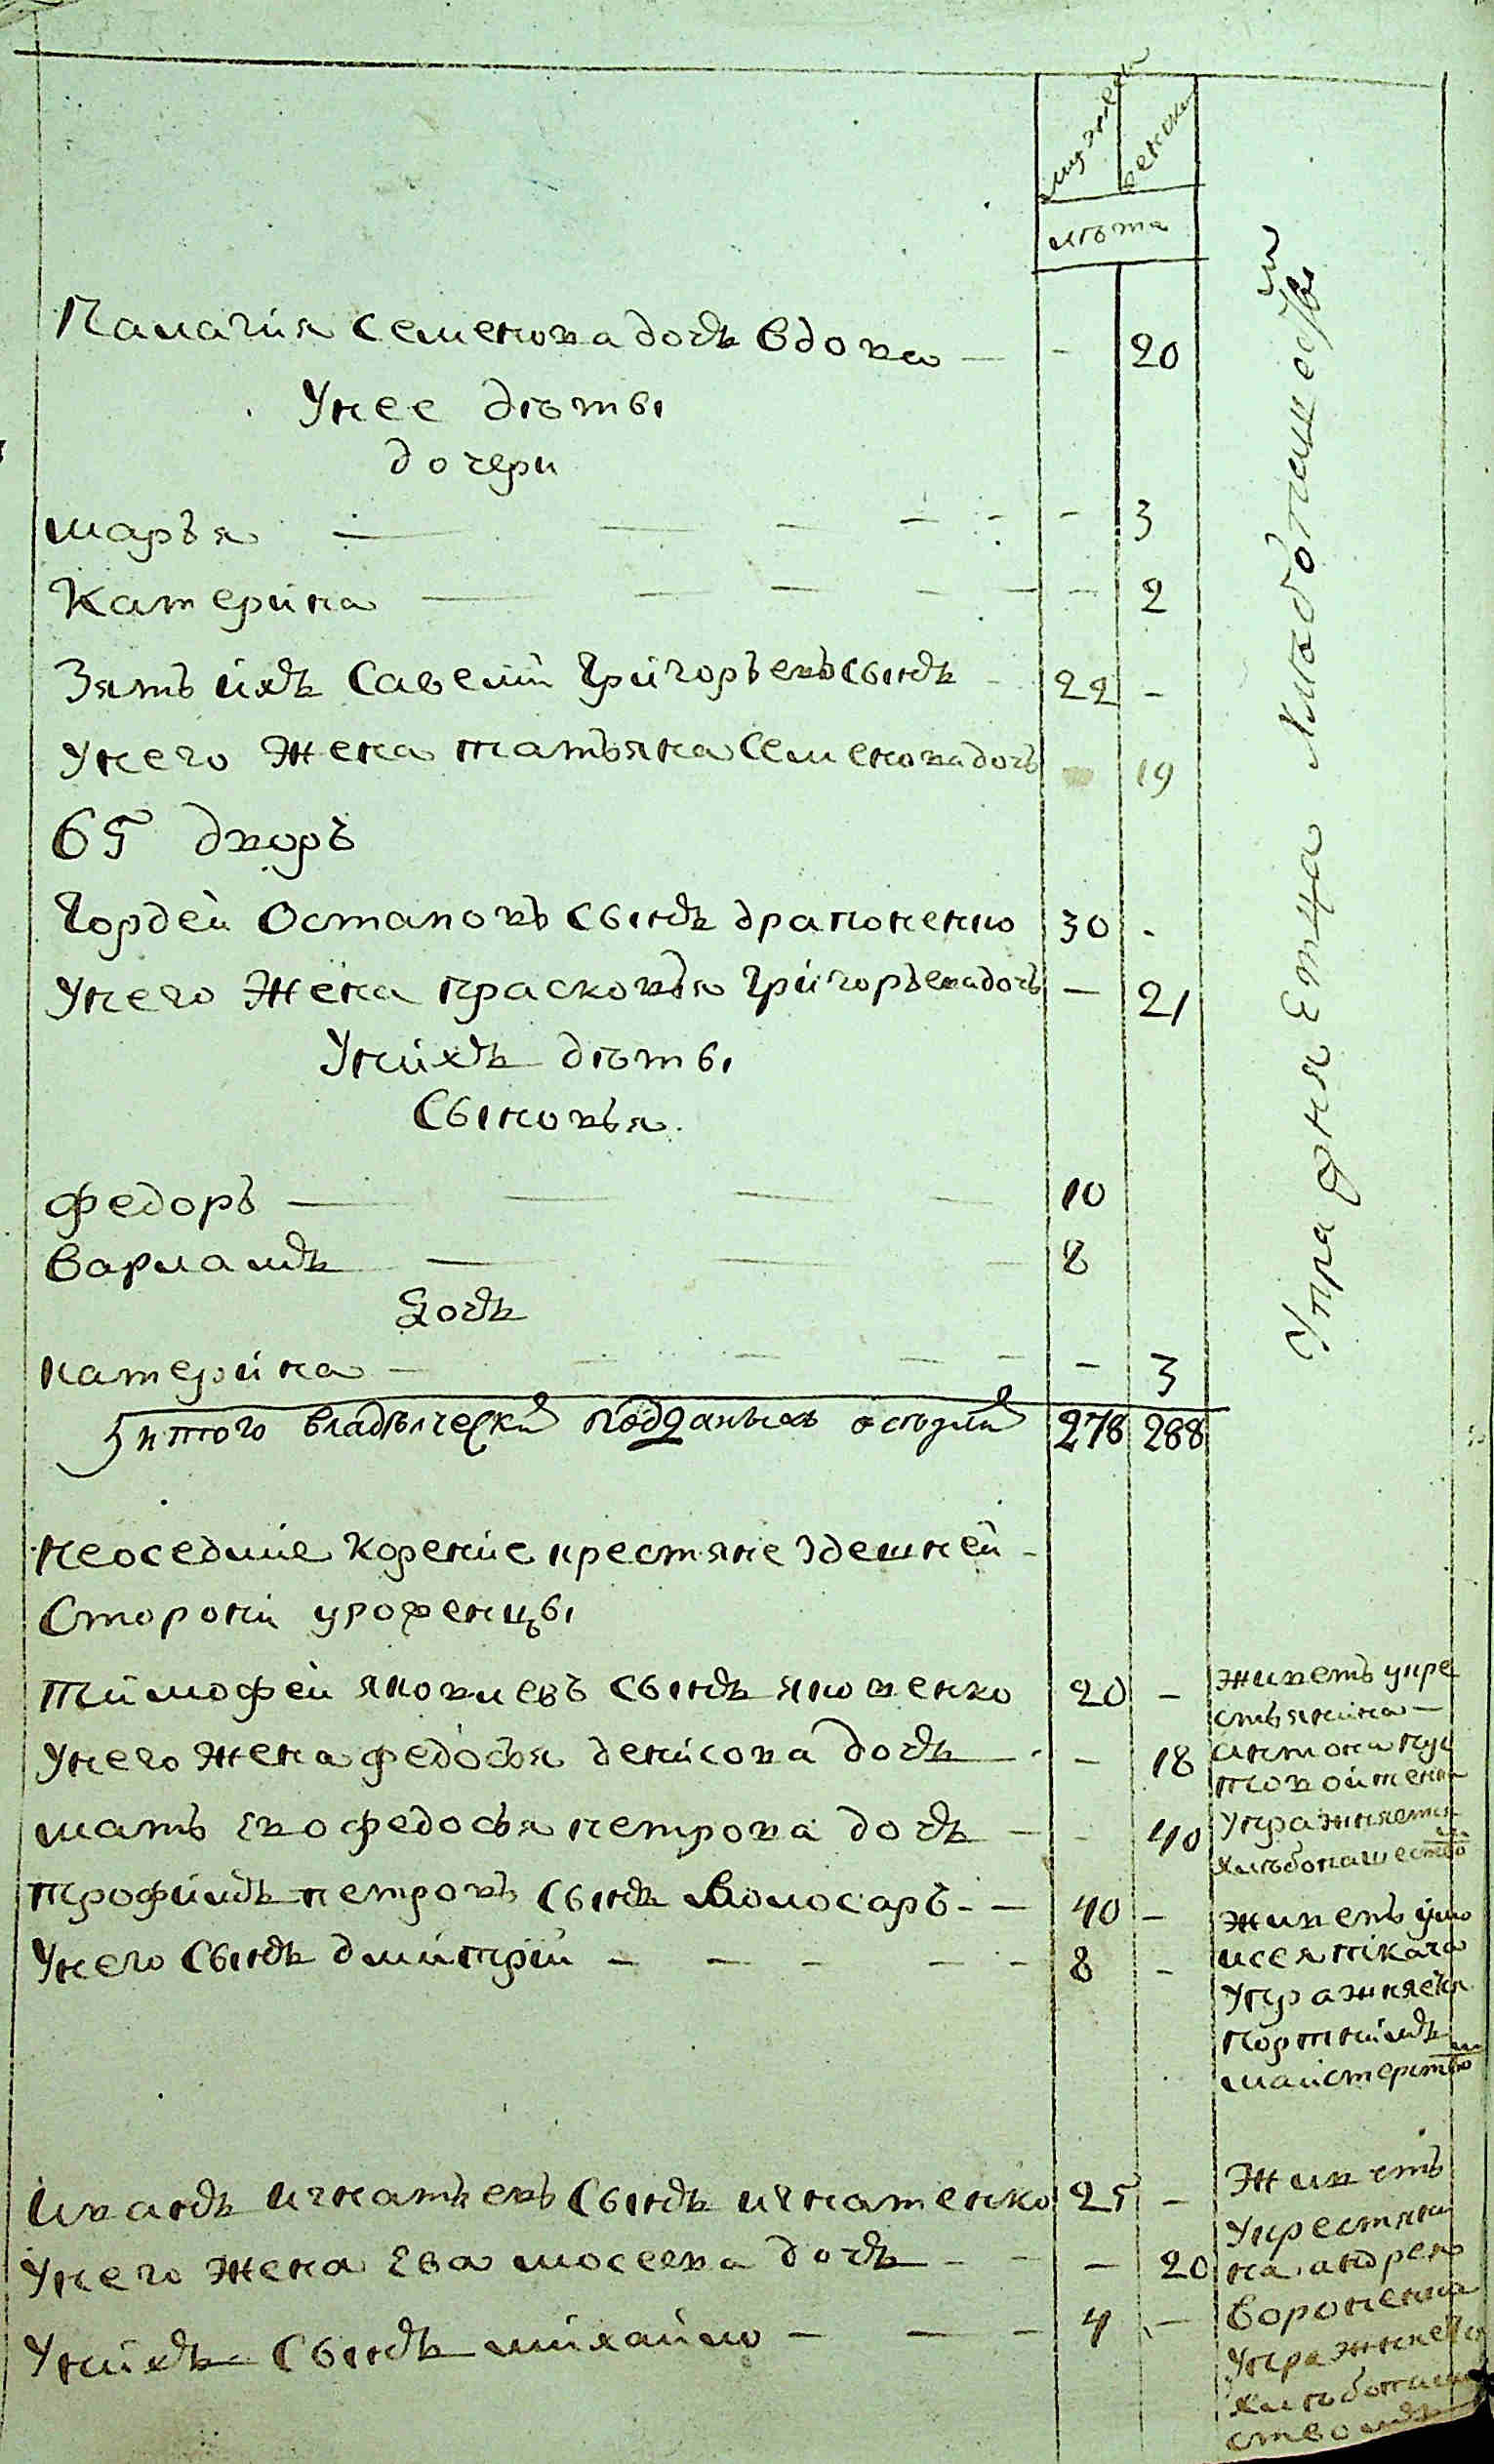 мужеска
женска
лѣта
Палагия Семенова дочь вдова — - 20
Унее дѣты
дочери
маръя — - 3
Катерина — - 2
Зять ихъ Савелий Григоръевъ сынъ - 22 -
Унего жена татъяна Семенова дочъ - 19
65 дворъ
Гордей Остаповъ сынъ драпоненко 30 -
Унего жена прасковъя Григоръева дочъ - 21
Унихъ дѣты
Сыновъя
федоръ — 10
варламъ — 8
Дочь
катерина — - 3
итого владѣлческий подданыхъ оседлий 278 288
Упражняетца хлѣбопашествы
неоседлие корение крестяне здешней
Стороны уроженцы
тимофей яковлевъ сынъ яковенко 20 -
живетъ укре
стьянина
Унего жена федосъя денисова дочь - 18
антона
мать Ево федосъя петрова дочь - 40
Упражняетца
хлѣбопашество
трофимъ петровъ сынъ волосаръ - 40 -
живетъ умо
исея ткача
Унего сынъ дмитрий - 8 -
Упражняетца
портнимъ
майстерство
иванъ игнатьевъ сынъ игнатенко 25 -
живетъ
Укрестяни
Унего жена Ева мосеева дочь - 20
на андрея
вороненка
Унихъ сынъ михайло - 4 -
Упражняетца
хлѣбопаше
ствомъ